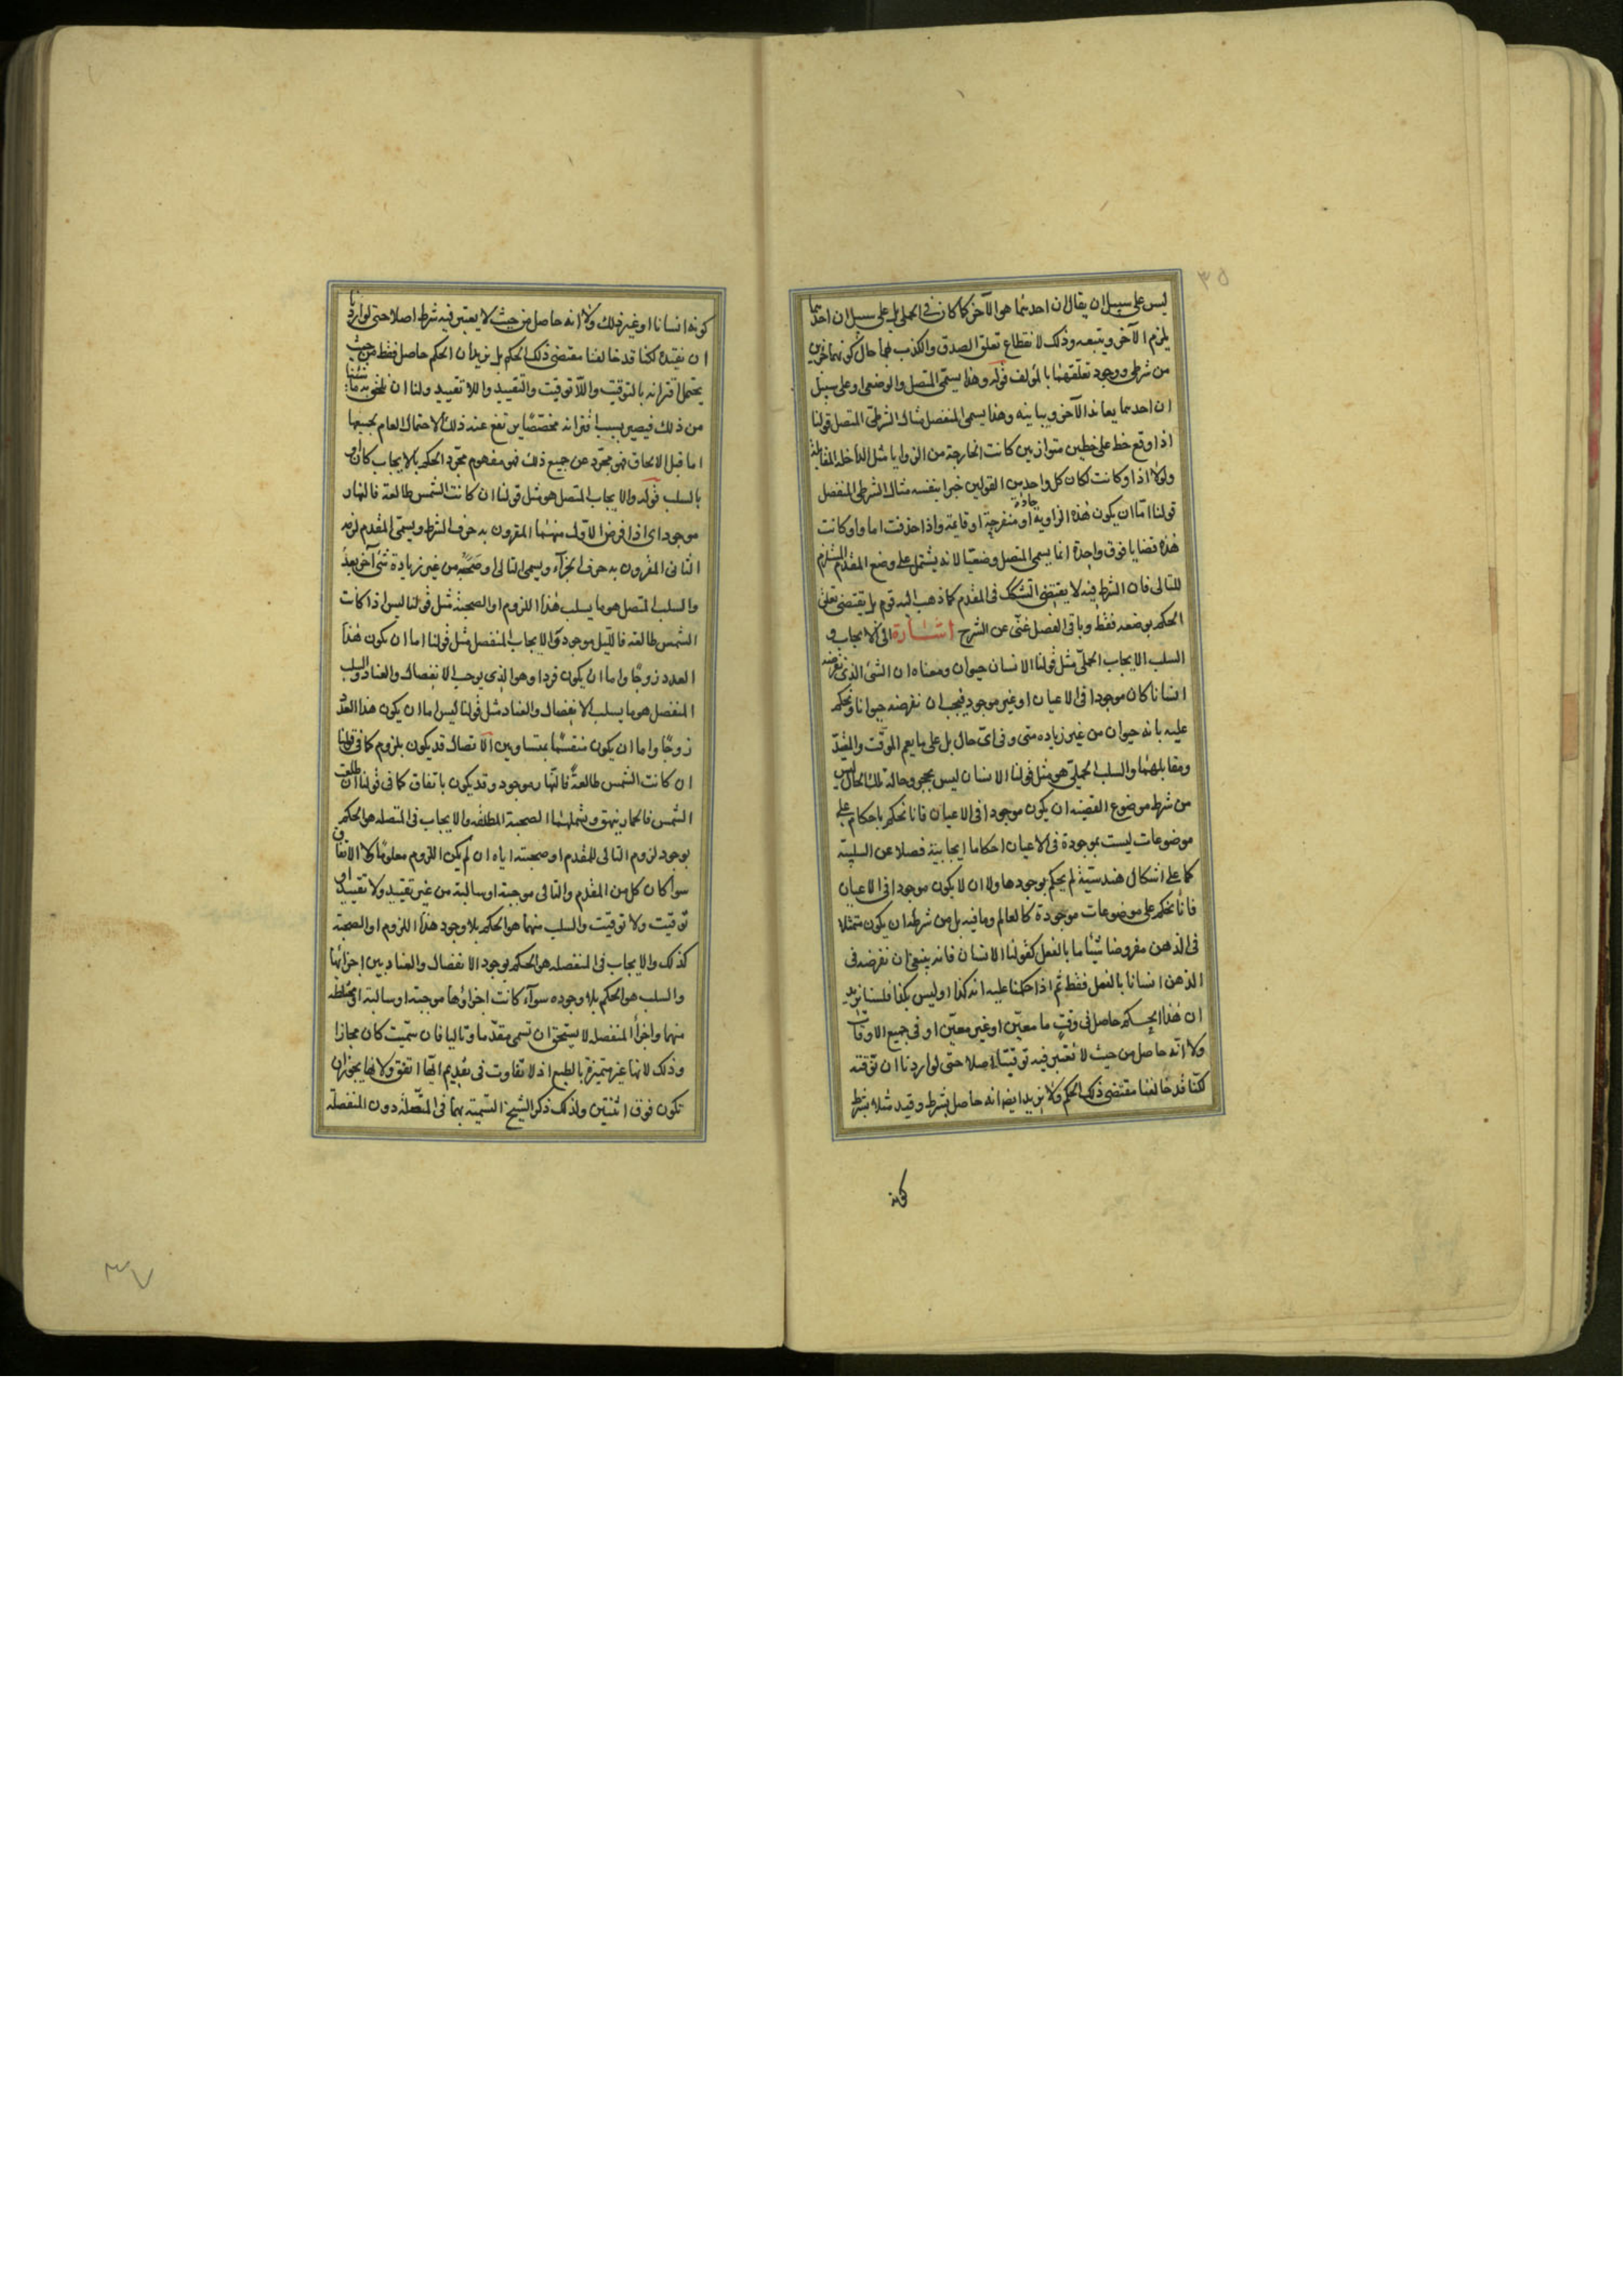 ٣٥
ليس على سبيل ان يقال ان احدهما هو الآخر كما كان فى الحملى بل على سبيل ان احدهما
يلزم الآخر ويتبعه وذلك لانقطاع تعلق الصدق والكذب بهما حال كونهما جزئين
من شرطى ووجود تعلقهما بالمؤلف قوله وهذا يسمى المتصل والوضعى او على سبيل
ان احدهما يعاند الآخر ويباينه وهذا يسمى المنفصل مثال الشرطى المتصل قولنا
اذا وقع خط على خطين متوازيين كانت الخارجة من الزوايا مثل الداخلة المقابلة
ولولا اذا وكانت لكان كل واحد من القولين خبرا بنفسه مثال الشرطى المنفصل
قولنا اما ان يكون هذه الزاوية حادة او منفرجة او قائمة واذا حذفت اما واو كانت
هذه قضايا فوق واحدة انما يسمى المتصل وضعيا لانه يشتمل على وضع المقدم المستلزم
للتالى فان الشرط فيه لا يقتضى التشكك فى المقدم كما ذهب اليه قوم بل يقتضى تعلق
الحكم بوضعه فقط وباقى الفصل غنى عن الشرح اشارة الى الايجاب و
السلب الايجاب الحملى مثل قولنا الانسان حيوان ومعناه ان الشئ الذى نفرضه
انسانا كان موجودا فى الاعيان او غير موجود فيجب ان نفرضه حيوانا ونحكم
عليه بانه حيوان من غير زياده متى وفى اى حال بل على ما يعم الموقت والمقيد
ومقابلهما والسلب الحملى هو مثل قولنا الانسان ليس بحجر وحاله تلك الحال ليس
من شرط موضوع القضيه ان يكون موجودا فى الاعيان فانا نحكم باحكام على
موضوعات ليست بموجودة فى الاعيان احكاما ايجابية فضلا عن السلبية
كما على اشكال هندستية لم يحكم بوجودها ولا ان لا يكون موجودا فى الاعيان
فانا نحكم على موضوعات موجودة كالعالم وما فيه بل من شرطه ان يكون متمثلا
فى الذهن مفروضا شيئا ما بالفعل كقولنا الانسان فانه ينبغى ان نفرضه فى
الذهن انسانا بالفعل فقط ثم اذا حكمنا عليه انه كذا او ليس بكذا فلسنا نريد
ان هذا الحكم حاصل فى وقت ما معين او غير معين او فى جميع الاوقات
ولا انه حاصل من حيث لا نعتبر فيه توقيتا اصلا حتى لو اردنا ان نوقته
لكنا قد خالفنا مقتضى ذلك الحكم ولا نريد ايضا انه حاصل بشرط وقيد مثلا بشرط
كونه
كونه انسانا او غير ذلك ولا انه حاصل من حيث لا يعتبر فيه شرط اصلا حتى لو اردنا
ان نقيده لكنا قد خالفنا مقتضى ذلك الحكم بل نريد ان الحكم حاصل فقط من حيث
يحتمل اقترانه بالتوقيت واللا توقيت والتقييد واللا تقييد ولنا ان نلحق به ما شئنا
من ذلك فيصير بسبب اقترانه مخصصا يرتفع عنه ذلك الاحتمال العام بجميعها
اما قبل الالحاق فهو مجرد عن جميع ذلك فهو مفهوم مجرد الحكم بالايجاب كان او
بالسلب قوله والايجاب المتصل هو مثل قولنا ان كانت الشمس طالعة فالنهار
موجود اى اذا فرض الاول منهما المقرون به حرف الشرط ويسمى المقدم لزمه
الثانى المقرون به حرف الجزآء ويسمى التالى او صحبه من غير زيادة شئ آخر بعد
والسلب المتصل هو ما يسلب هذا اللزوم او الصحبة مثل قولنا ليس اذا كانت
الشمس طالعة فالليل موجود والايجاب المنفصل مثل قولنا اما ان يكون هذا
العدد زوجا واما ان يكون فردا وهو الذى يوجب الانفصال والعناد والسلب
المنفصل هو ما يسلب الانفصال والعناد مثل قولنا ليس اما ان يكون هذا العدد
زوجا واما ان يكون منقسما بمتساويين الاتصال قد يكون بلزوم كما فى قولنا
ان كانت الشمس طالعة فالنهار موجود وقد يكون باتفاق كما فى قولنا ان طلعت
الشمس فالحمار ينهق ويشملهما الصحبة المطلقه والايجاب فى المتصله هو الحكم
بوجود لزوم التالى للمقدم او صحبته اياه ان لم يكن اللزوم معلوما ولا الاتفاق
سوآ كان كل من المقدم والتالى موجبة او سالبة من غير تقييد ولا تقييد او
توقيت ولا توقيت والسلب منهما هو الحكم بلا وجود هذا اللزوم او الصحبة
كذلك والايجاب فى المنفصله هو الحكم بوجود الانفصال والعناد بين اجزائها
والسلب هو الحكم بلا وجوده سوآء كانت اجزاؤها موجبة او سالبة او مختلطه
منهما واجزآ المنفصله لا يستحق ان تسمى مقدما وتاليا فان سميت كان مجازا
وذلك لانها غير متميزة بالطبع اذ لا تفاوت فى تقديم ايها اتفق ولانها يجوز ان
تكون فوق اثنتين ولذلك ذكر الشيخ التسمية بهما فى المتصلة دون المنفصلة
٣٧